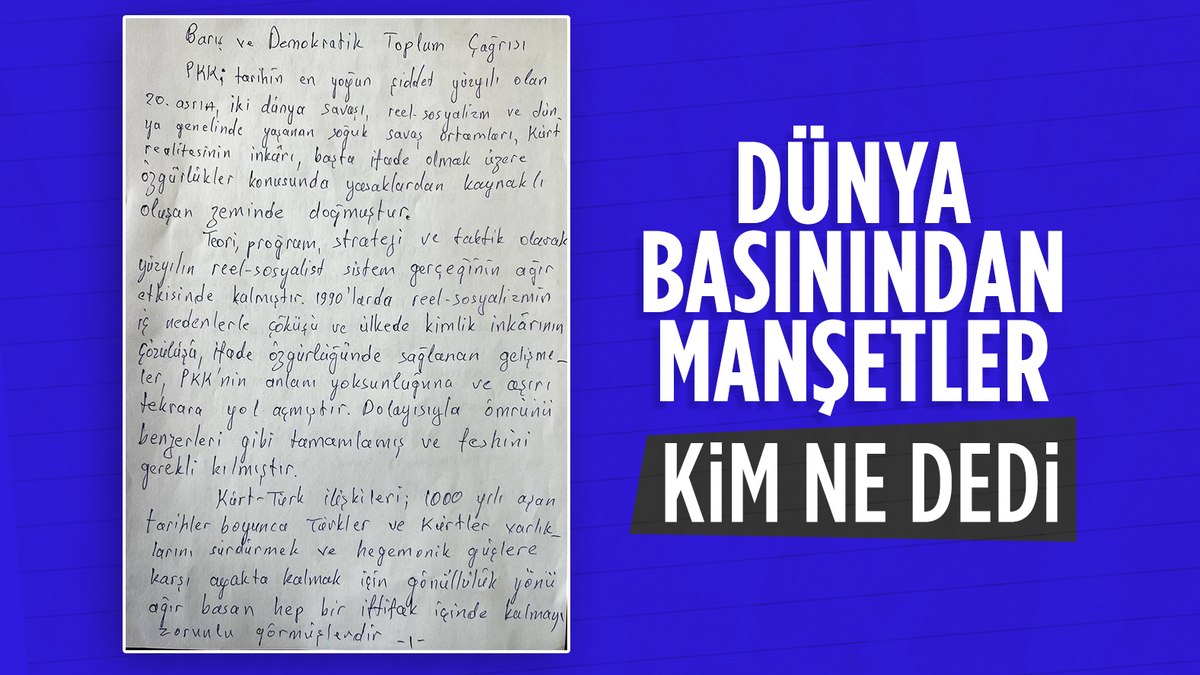 Barış ve Demokratik Toplum Çağrısı
PKK; tarihin en yoğun şiddet yüzyılı olan
20. asrın, iki dünya savaşı, reel-sosyalizm ve dün
ya genelinde yaşanan soğuk savaş ortamları, Kürt
realitesinin inkârı, başta ifade olmak üzere
özgürlükler konusunda yasaklardan kaynaklı
oluşan zeminde doğmuştur.
Teori, program, strateji ve taktik olarak
yüzyılın reel-sosyalist sistem gerçeğinin ağır
etkisinde kalmıştır. 1990'larda reel-sosyalizmin
iç nedenlerle çöküşü ve ülkede kimlik inkârının
çözülüşü, ifade özgürlüğünde sağlanan gelişme-
ler, PKK'nin anlam yoksunluğuna ve aşırı
tekrara yol açmıştır. Dolayısıyla ömrünü
benzerleri gibi tamamlamış ve feshini
gerekli kılmıştır.
Kürt-Türk ilişkileri; 1000 yılı aşan
tarihler boyunca Türkler ve Kürtler varlık-
larını sürdürmek ve hegemonik güçlere
karşı ayakta kalmak için gönüllülük yönü
ağır basan hep bir ittifak içinde kalmayı
zorunlu görmüşlerdir -1-
DÜNYA
BASININDAN
MANŞETLER
KİM NE DEDİ